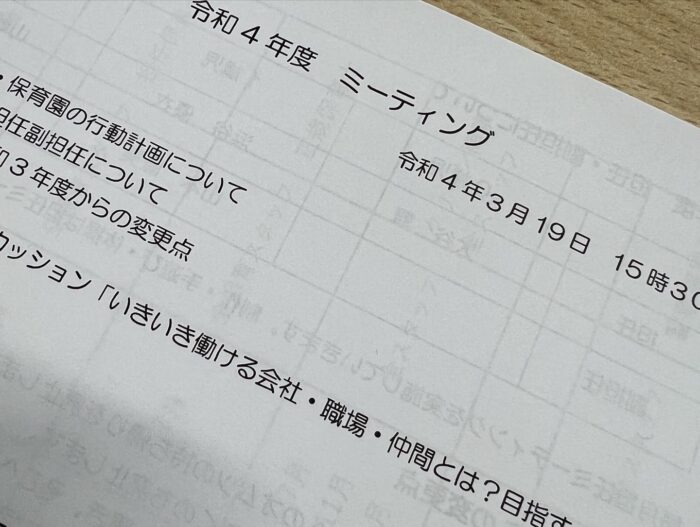 令和４年度　ミーティング
令和４年３月１９日　１５時３０
・保育園の行動計画について
担任副担任について
和３年度からの変更点
カッション「いきいき働ける会社・職場・仲間とは？目指す